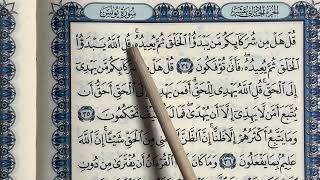 سُورَةُ يُونُسَ
قُلْ هَلْ مِن شُرَكَآئِكُم مَّن يَبْدَؤُا۟ ٱلْخَلْقَ ثُمَّ يُعِيدُهُۥ ۚ قُلِ ٱللَّهُ يَبْدَؤُا۟
ٱلْخَلْقَ ثُمَّ يُعِيدُهُۥ ۖ فَأَنَّىٰ تُؤْفَكُونَ ٣٤ قُلْ هَلْ مِن شُرَكَآئِكُم مَّن يَهْدِىٓ
إِلَى ٱلْحَقِّ ۚ قُلِ ٱللَّهُ يَهْدِى لِلْحَقِّ ۗ أَفَمَن يَهْدِىٓ إِلَى ٱلْحَقِّ أَحَقُّ أَن
يُتَّبَعَ أَمَّن لَّا يَهِدِّىٓ إِلَّآ أَن يُهْدَىٰ ۖ فَمَا لَكُمْ كَيْفَ تَحْكُمُونَ ٣٥
وَمَا يَتَّبِعُ أَكْثَرُهُمْ إِلَّا ظَنًّا ۚ إِنَّ ٱلظَّنَّ لَا يُغْنِى مِنَ ٱلْحَقِّ شَيْـًٔا ۚ إِنَّ ٱللَّهَ
عَلِيمٌۢ بِمَا يَفْعَلُونَ ٣٦ وَمَا كَانَ هَٰذَا ٱلْقُرْءَانُ أَن يُفْتَرَىٰ مِن دُونِ